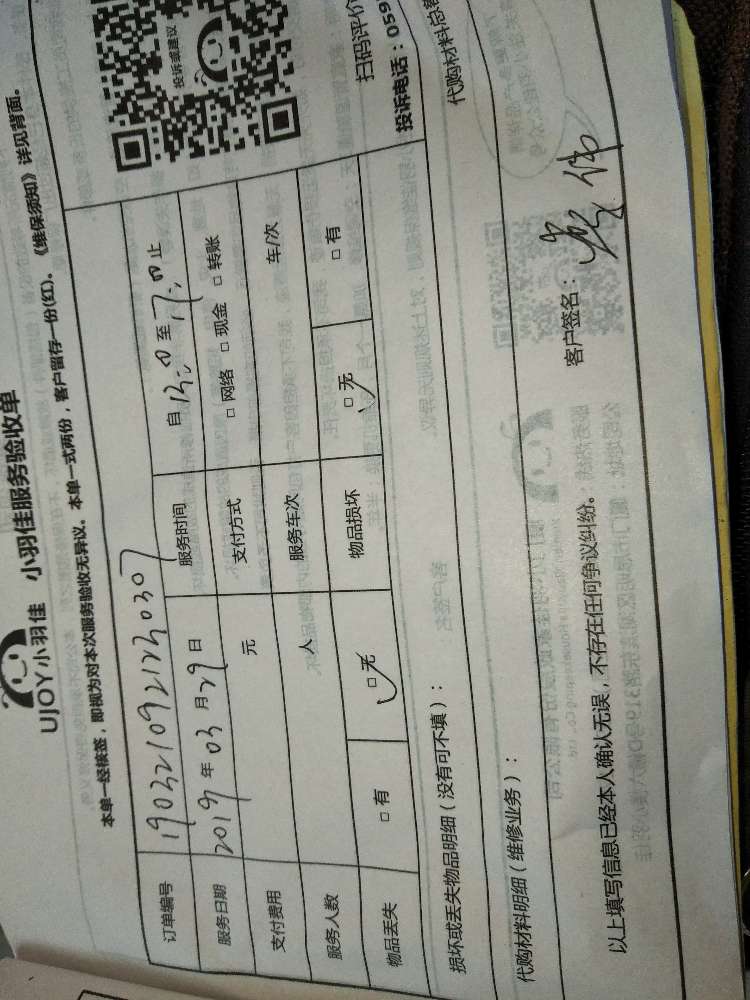 UJOY小羽佳 小羽佳服务验收单
本单一经核签，即视为对本次服务验收无异议。本单一式两份，客户留存一份(红)。《维保须知》详见背面。
订单编号 1903210921230307 服务时间 自13:00至17:00止
服务日期 2019年03月29日 支付方式 □网络 □现金 □转账
支付费用 元 服务车次 车/次
服务人数 人 物品损坏 □无 □有
物品丢失 □有 □无
投诉或建议
扫码评价
投诉电话：059
损坏或丢失物品明细（没有可不填）：
代购材料明细（维修业务）：
代购材料总
以上填写信息已经本人确认无误，不存在任何争议纠纷。 客户签名：